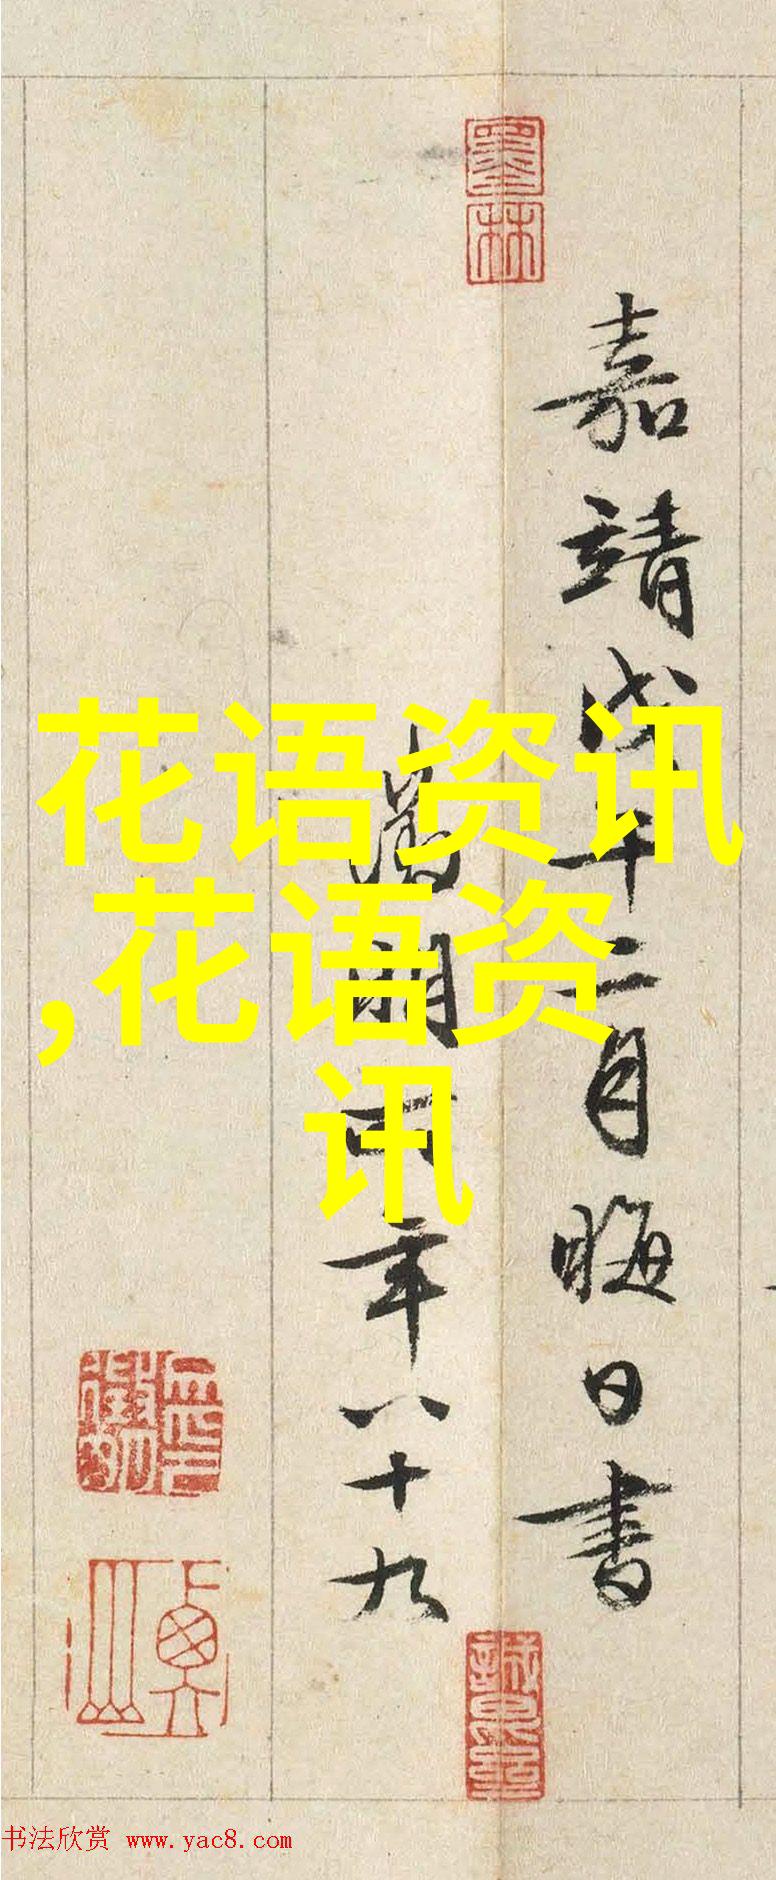 嘉靖戊午二月晦日書
徵明時年八十九
墨林
花语资讯
,花语资
讯
书法欣赏 www.yac8.com